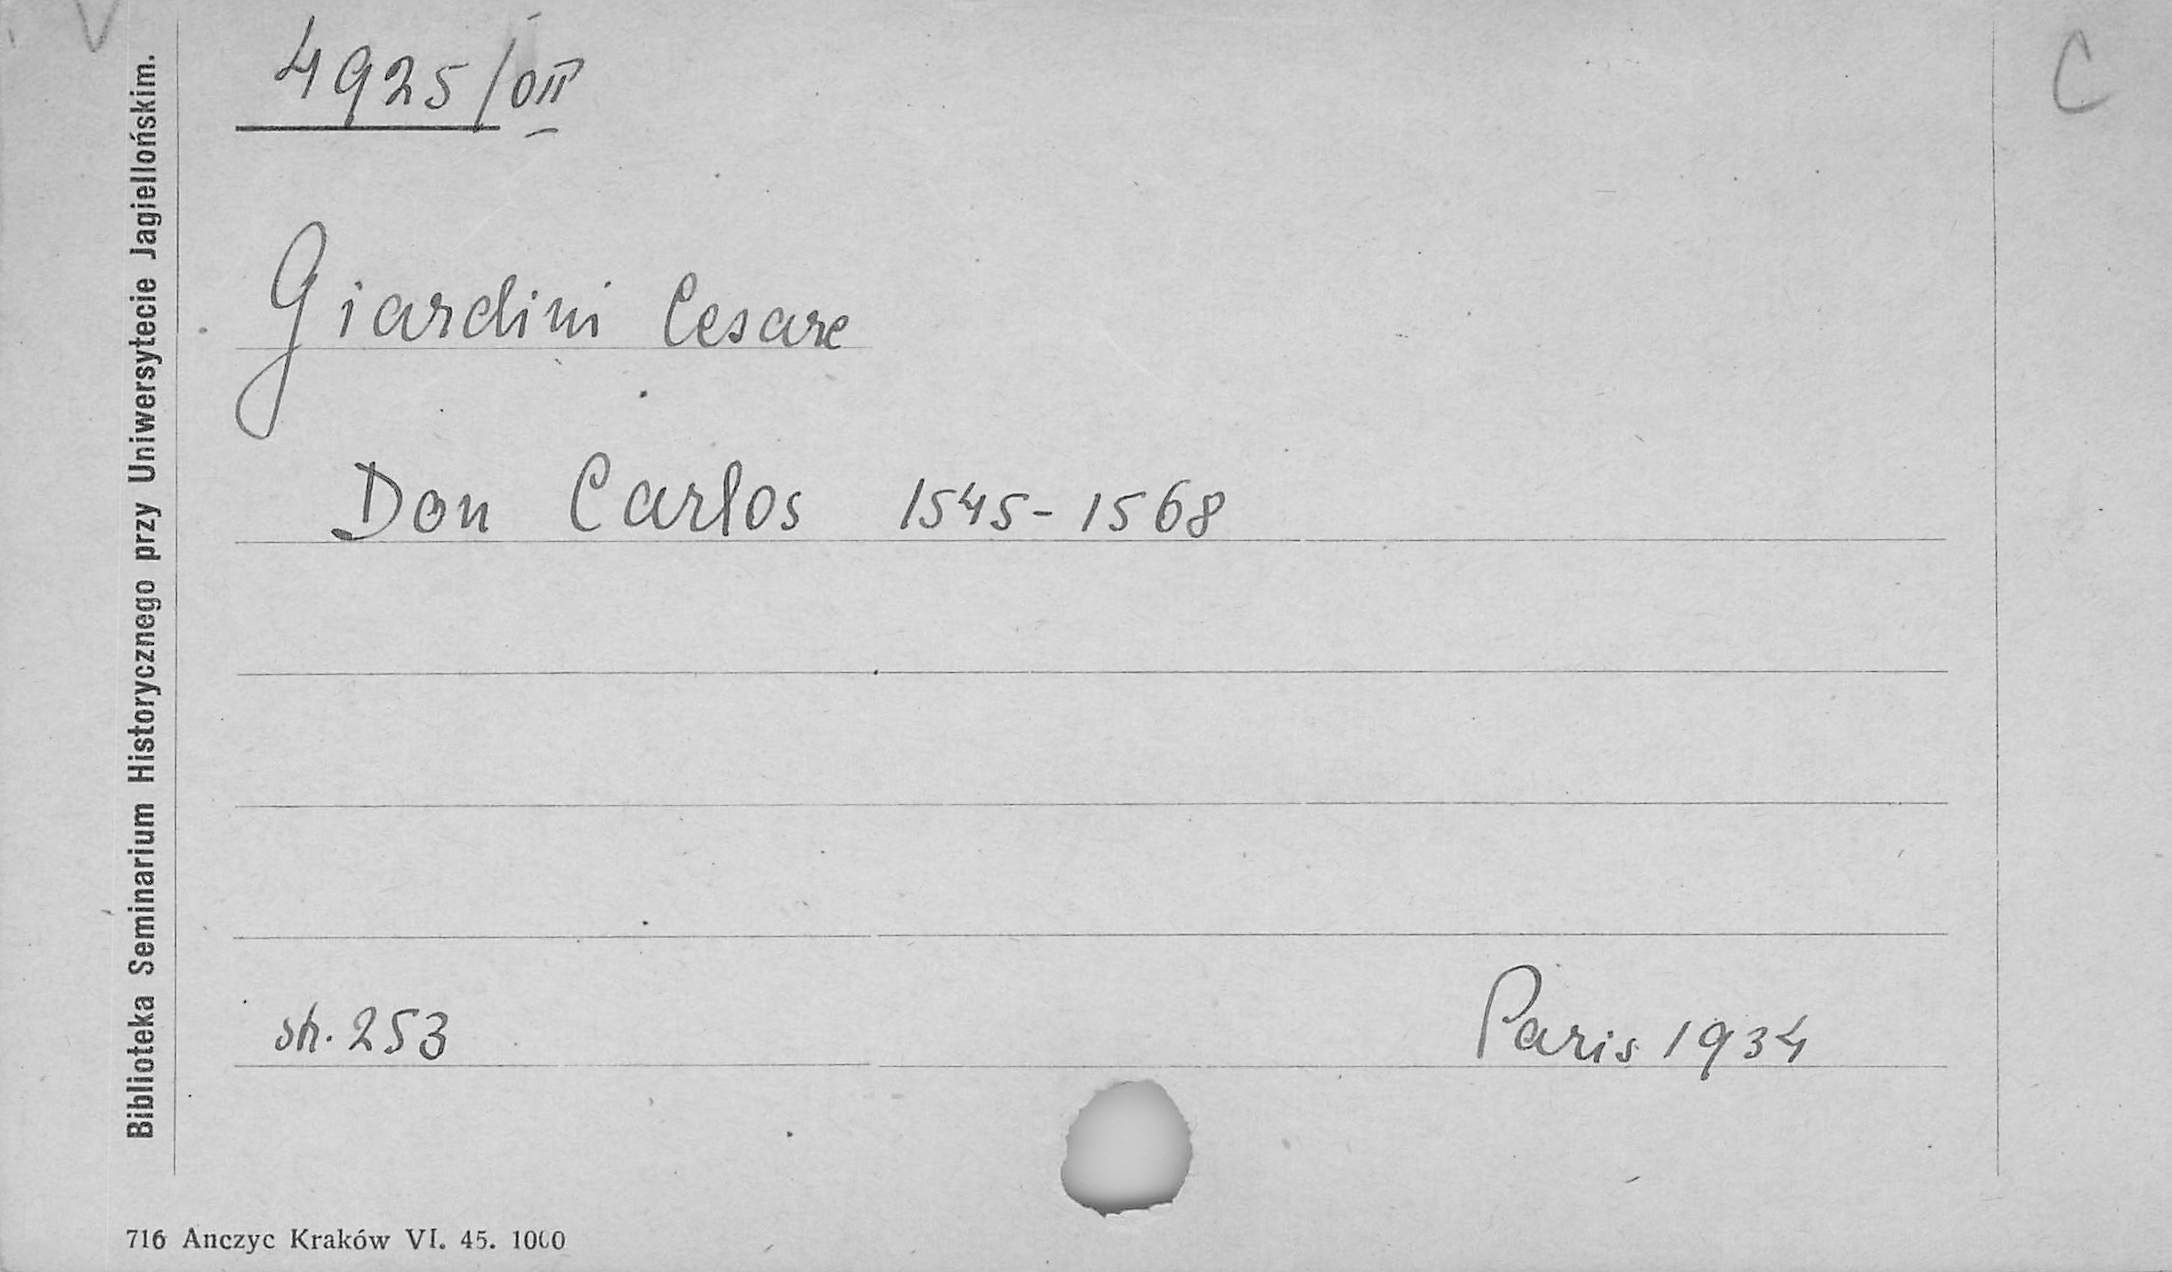 4925/OII
C
Giardini Cesare
Don Carlos 1545-1568
str. 253
Paris 1934
Biblioteka Seminarium Historycznego przy Uniwersytecie Jagiellońskim.
716 Anczyc Kraków VI. 45. 1000